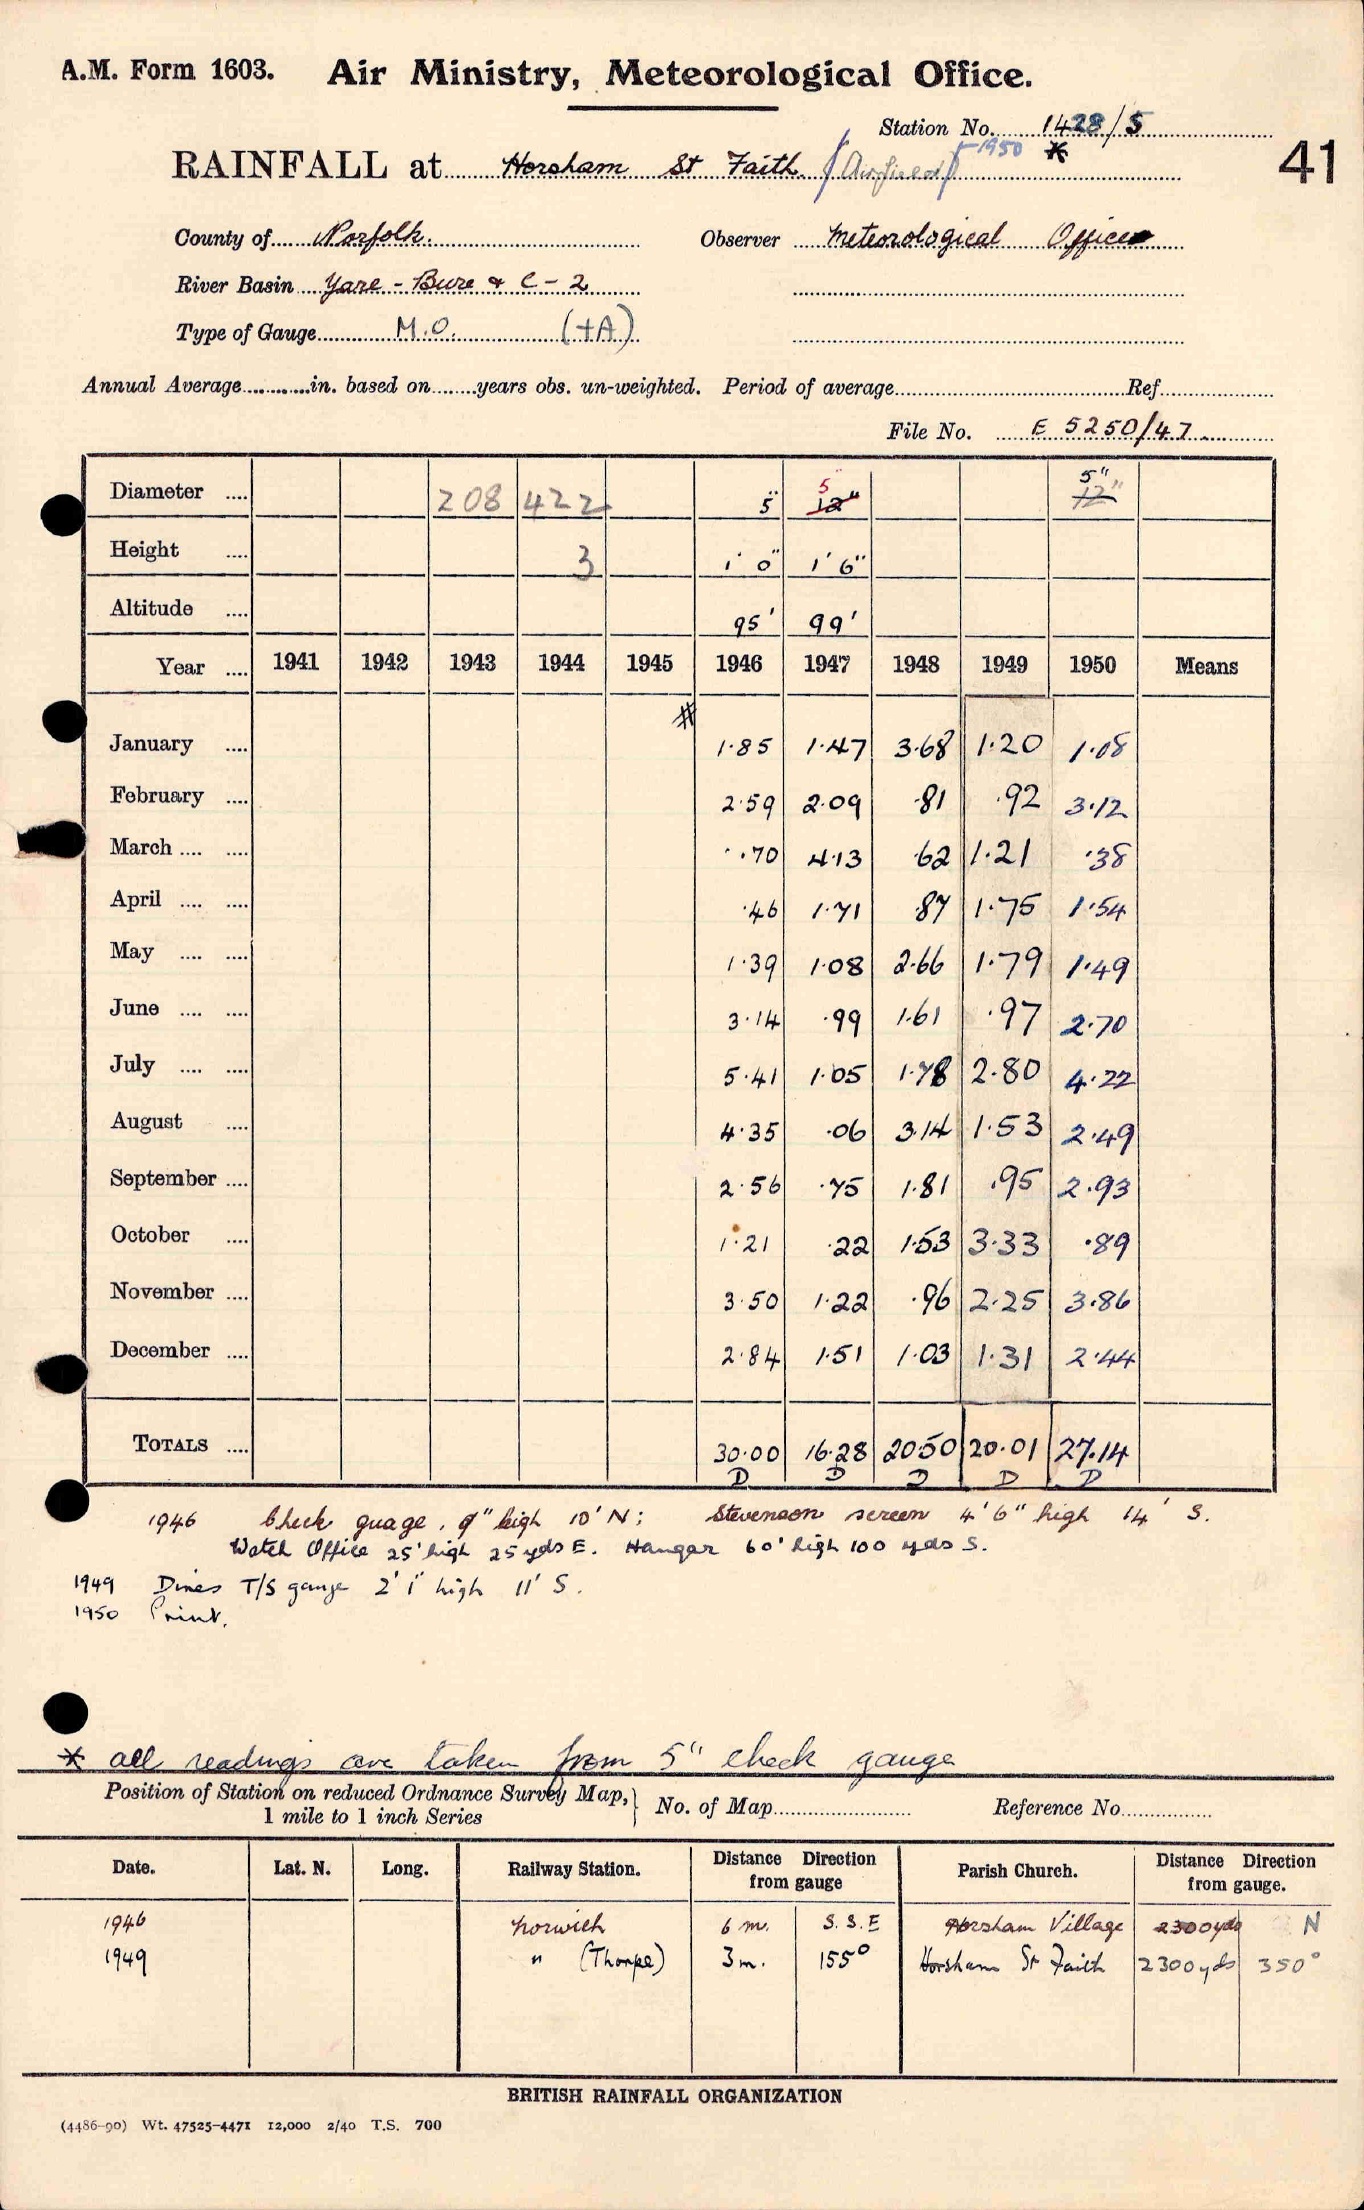 A.M. Form 1603. Air Ministry, Meteorological Office.
Station No. 1428/5
41
RAINFALL at Horsham St Faith. (Airfield) 1950 *
County of Norfolk. Observer Meteorological Office
River Basin Yare - Bure & C - 2
Type of Gauge M.O. (+A)
Annual Average in. based on years obs. un-weighted. Period of average Ref.
File No. E 5250/47
Diameter .... 208 422 5" 5 12" 5" 12"
Height .... 3 1' 0" 1' 6"
Altitude .... 95' 99'
Year .... 1941 1942 1943 1944 1945 1946 1947 1948 1949 1950 Means
#
January .... 1.85 1.47 3.68 1.20 1.08
February .... 2.59 2.09 .81 .92 3.12
March .... .... .70 4.13 .62 1.21 .38
April .... .... .46 1.71 .87 1.75 1.54
May .... .... 1.39 1.08 2.66 1.79 1.49
June .... .... 3.14 .99 1.61 .97 2.70
July .... .... 5.41 1.05 1.78 2.80 4.22
August .... 4.35 .06 3.14 1.53 2.49
September .... 2.56 .75 1.81 .95 2.93
October .... 1.21 .22 1.53 3.33 .89
November .... 3.50 1.22 .96 2.25 3.86
December .... 2.84 1.51 1.03 1.31 2.44
TOTALS .... 30.00 16.28 20.50 20.01 27.14
D D D D D
1946 Check guage. 9" high 10' N; Stevenson screen 4' 6" high 14' S.
Watch Office 25' high 25 yds E. Hangar 60' high 100 yds S.
1949 Dines T/S gauge 2' 1" high 11' S.
1950 Print.
* all readings are taken from 5" check gauge
Position of Station on reduced Ordnance Survey Map, 1 mile to 1 inch Series } No. of Map Reference No.
Date. Lat. N. Long. Railway Station. Distance Direction from gauge Parish Church. Distance Direction from gauge.
1946 Norwich 6 m. S.S.E Horsham Village 2300 yds N
1949 " (Thorpe) 3 m. 155° Horsham St Faith 2300 yds 350°
BRITISH RAINFALL ORGANIZATION
(4486-90) Wt. 47525-4471 12,000 2/40 T.S. 700